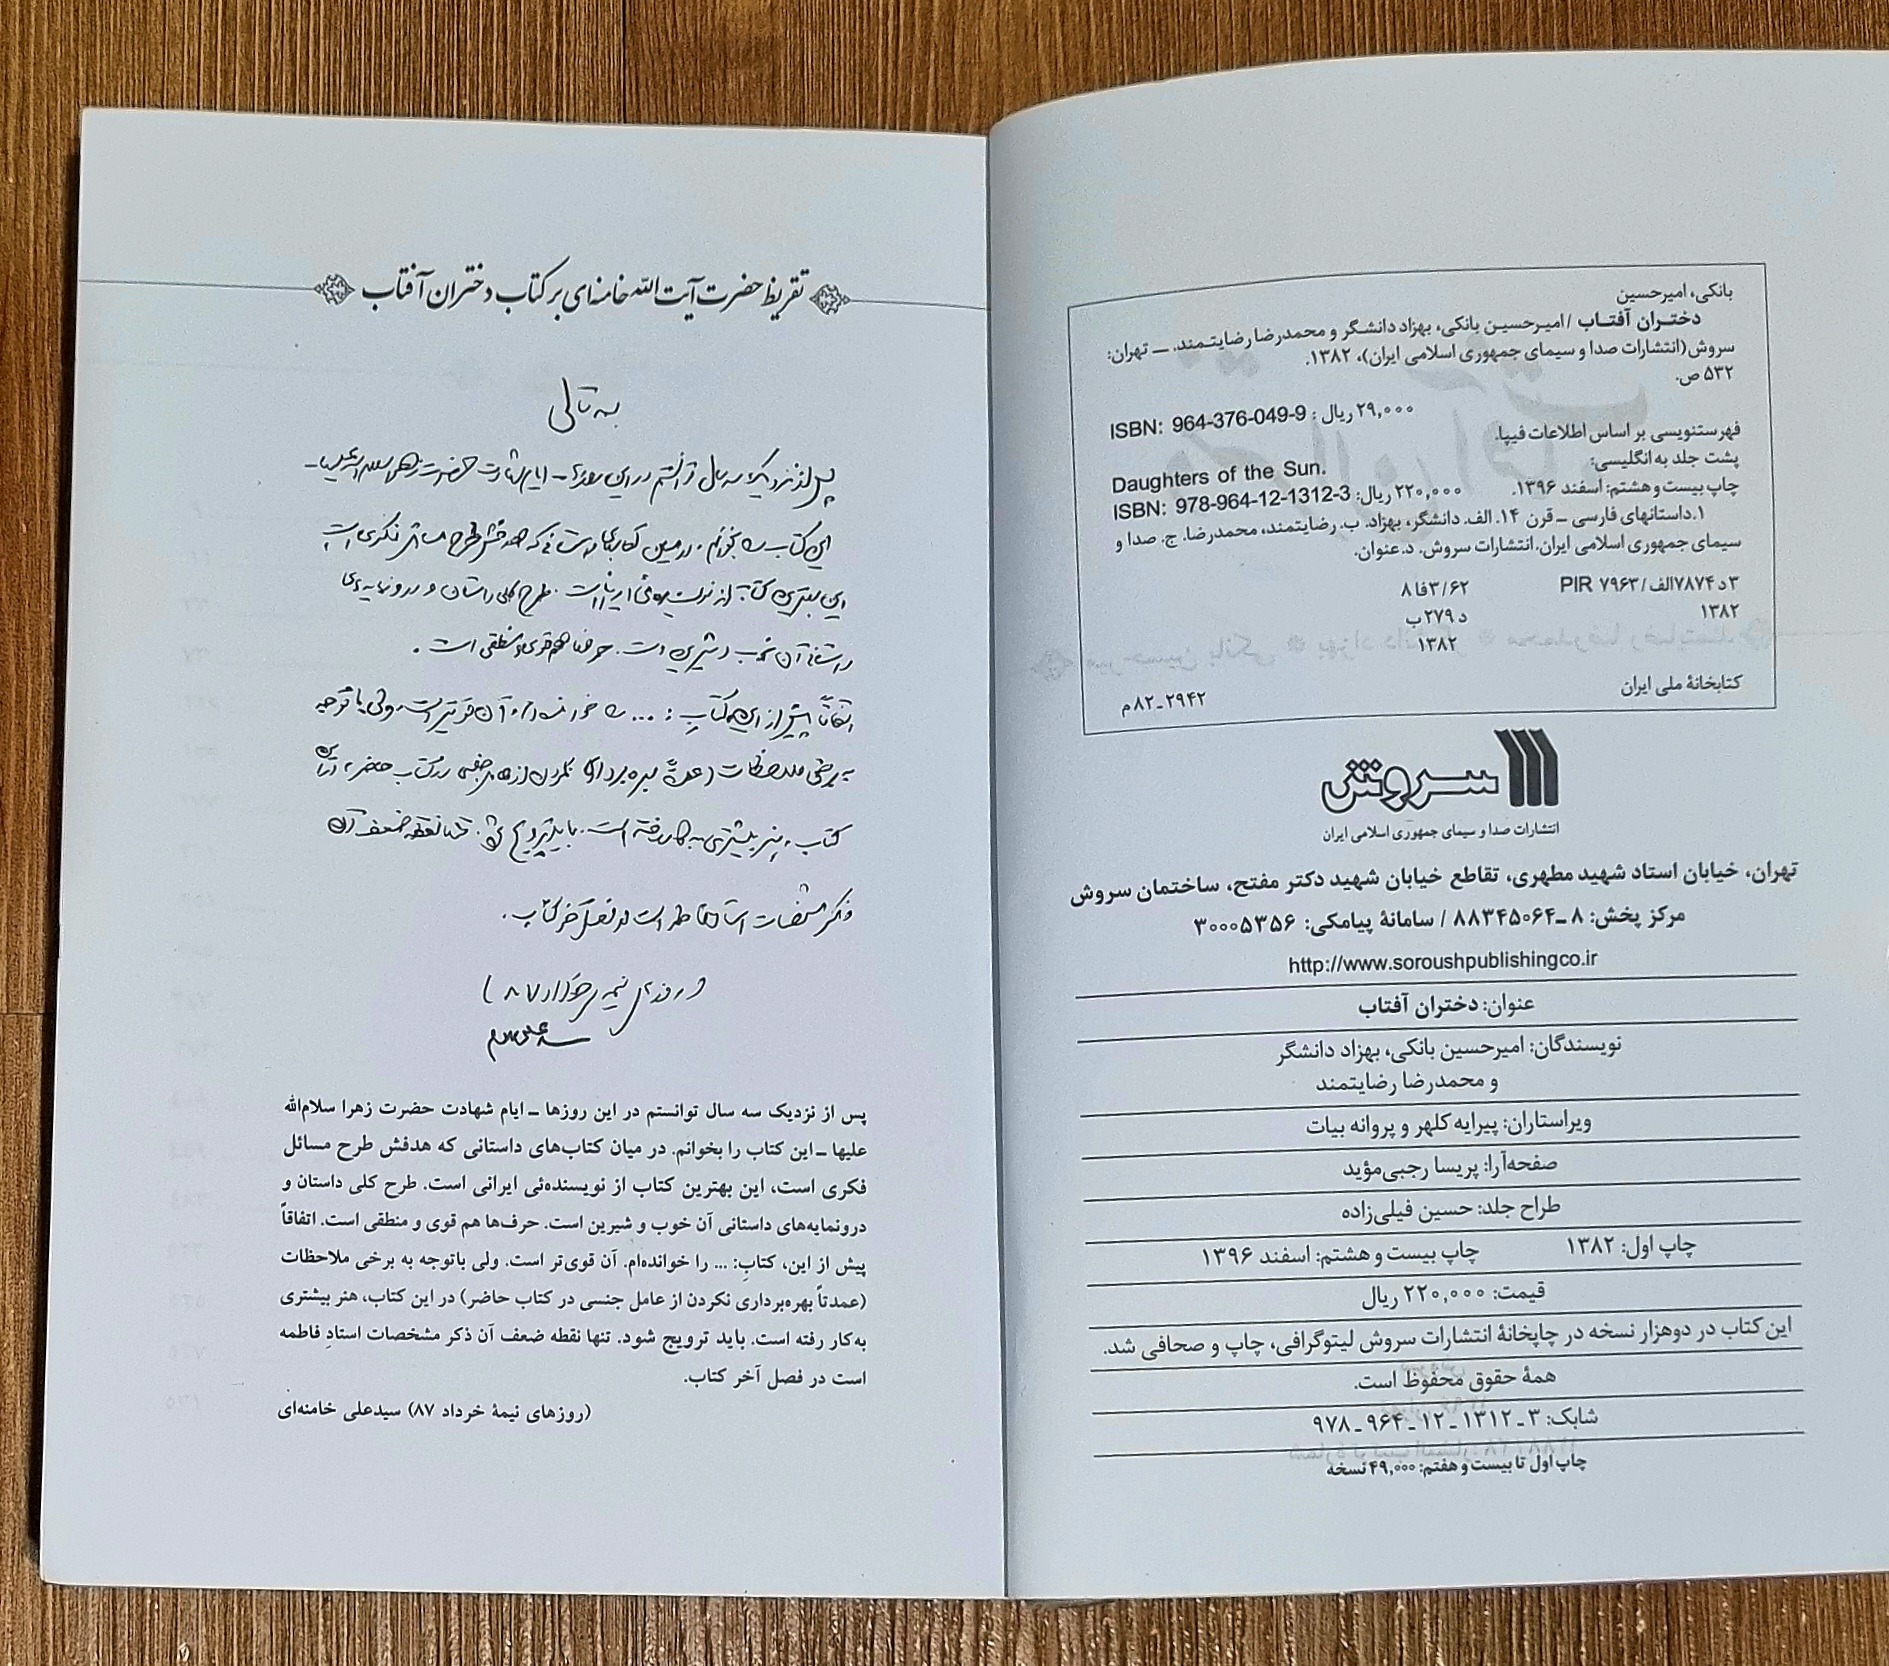 بانکی، امیرحسین
دختـران آفتـاب / امیـرحسیـن بانکی، بهزاد دانشـگر و محمدرضا رضایتـمند. ـــ تهران:
سروش(انتشارات صدا و سیمای جمهوری اسلامی ایران)، ۱۳۸۲.
۵۳۲ ص.
ISBN: 964-376-049-9 : ۲۹,۰۰۰ ریال
فهرستنویسی بر اساس اطلاعات فیپا.
پشت جلد به انگلیسی:
Daughters of the Sun.
چاپ بیست و هشتم: اسفند ۱۳۹۶.
ISBN: 978-964-12-1312-3 :۲۲۰,۰۰۰ ریال
۱.داستانهای فارسی ــ قرن ۱۴. الف. دانشگر، بهزاد. ب. رضایتمند، محمدرضا. ج. صدا و
سیمای جمهوری اسلامی ایران.انتشارات سروش. د.عنوان.
۳ د ۷۸۷۴الف/ PIR ۷۹۶۳ ۸فا۳/۶۲
۱۳۸۲ د ۲۷۹ب
۱۳۸۲
کتابخانهٔ ملی ایران ۲۹۴۲ـ۸۲م
سروش
انتشارات صدا و سیمای جمهوری اسلامی ایران
تهران، خیابان استاد شهید مطهری، تقاطع خیابان شهید دکتر مفتح، ساختمان سروش
مرکز پخش: ۸ ـ ۸۸۳۴۵۰۶۴ / سامانهٔ پیامکی: ۳۰۰۰۵۳۵۶
http://www.soroushpublishingco.ir
عنوان: دختران آفتاب
نویسندگان: امیرحسین بانکی، بهزاد دانشگر
و محمدرضا رضایتمند
ویراستاران: پیرایه کلهر و پروانه بیات
صفحه‌آرا: پریسا رجبی‌مؤید
طراح جلد: حسین فیلی‌زاده
چاپ اول: ۱۳۸۲ چاپ بیست و هشتم: اسفند ۱۳۹۶
قیمت: ۲۲۰,۰۰۰ ریال
این کتاب در دوهزار نسخه در چاپخانهٔ انتشارات سروش لیتوگرافی، چاپ و صحافی شد.
همهٔ حقوق محفوظ است.
شابک: ۳ ـ ۱۳۱۲ ـ ۱۲ ـ ۹۶۴ ـ ۹۷۸
چاپ اول تا بیست و هفتم: ۴۹,۰۰۰ نسخه
تقریظ حضرت آیت الله خامنه‌ای بر کتاب دختران آفتاب
بسمه تعالی
پس از نزدیک به سه سال توانستم در این روزها - ایام شهادت حضرت زهرا سلام الله علیها -
این کتاب را بخوانم. در میان کتابهای داستانی که هدفش طرح مسائل فکری است
این بهترین کتاب از نویسنده‌ئی ایرانی است. طرح کلی داستان و درونمایه‌های
داستانی آن خوب و شیرین است. حرفها هم قوی و منطقی است.
اتفاقاً پیش از این، کتابِ: ... را خوانده‌ام. آن قوی‌تر است. ولی با توجه
به برخی ملاحظات (عمدتاً بهره‌برداری نکردن از عامل جنسی در کتاب حاضر) در این
کتاب، هنر بیشتری به کار رفته است. باید ترویج شود. تنها نقطه ضعف آن
ذکر مشخصات استاد فاطمه است در فصل آخر کتاب.
(روزهای نیمه‌ی خرداد ۸۷)
سیدعلی خامنه‌ای
پس از نزدیک سه سال توانستم در این روزها ــ ایام شهادت حضرت زهرا سلام‌الله
علیها ــ این کتاب را بخوانم. در میان کتاب‌های داستانی که هدفش طرح مسائل
فکری است، این بهترین کتاب از نویسنده‌ئی ایرانی است. طرح کلی داستان و
درونمایه‌های داستانی آن خوب و شیرین است. حرف‌ها هم قوی و منطقی است. اتفاقاً
پیش از این، کتابِ: ... را خوانده‌ام. آن قوی‌تر است. ولی باتوجه به برخی ملاحظات
(عمدتاً بهره‌برداری نکردن از عامل جنسی در کتاب حاضر) در این کتاب، هنر بیشتری
به‌کار رفته است. باید ترویج شود. تنها نقطه ضعف آن ذکر مشخصات استادِ فاطمه
است در فصل آخر کتاب.
(روزهای نیمهٔ خرداد ۸۷) سیدعلی خامنه‌ای